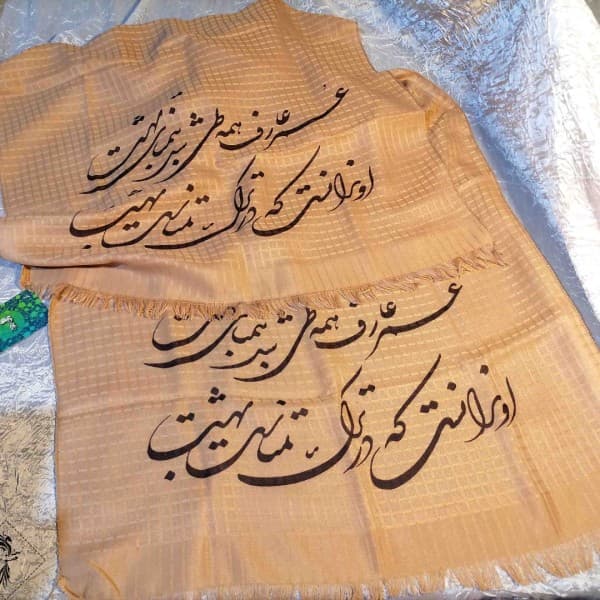 عمر عارف همه طی شد به تمنای بهشت
او ندانست که در ترک تمناست بهشت
عمر عارف همه طی شد به تمنای
او ندانست که در ترک تمناست بهشت